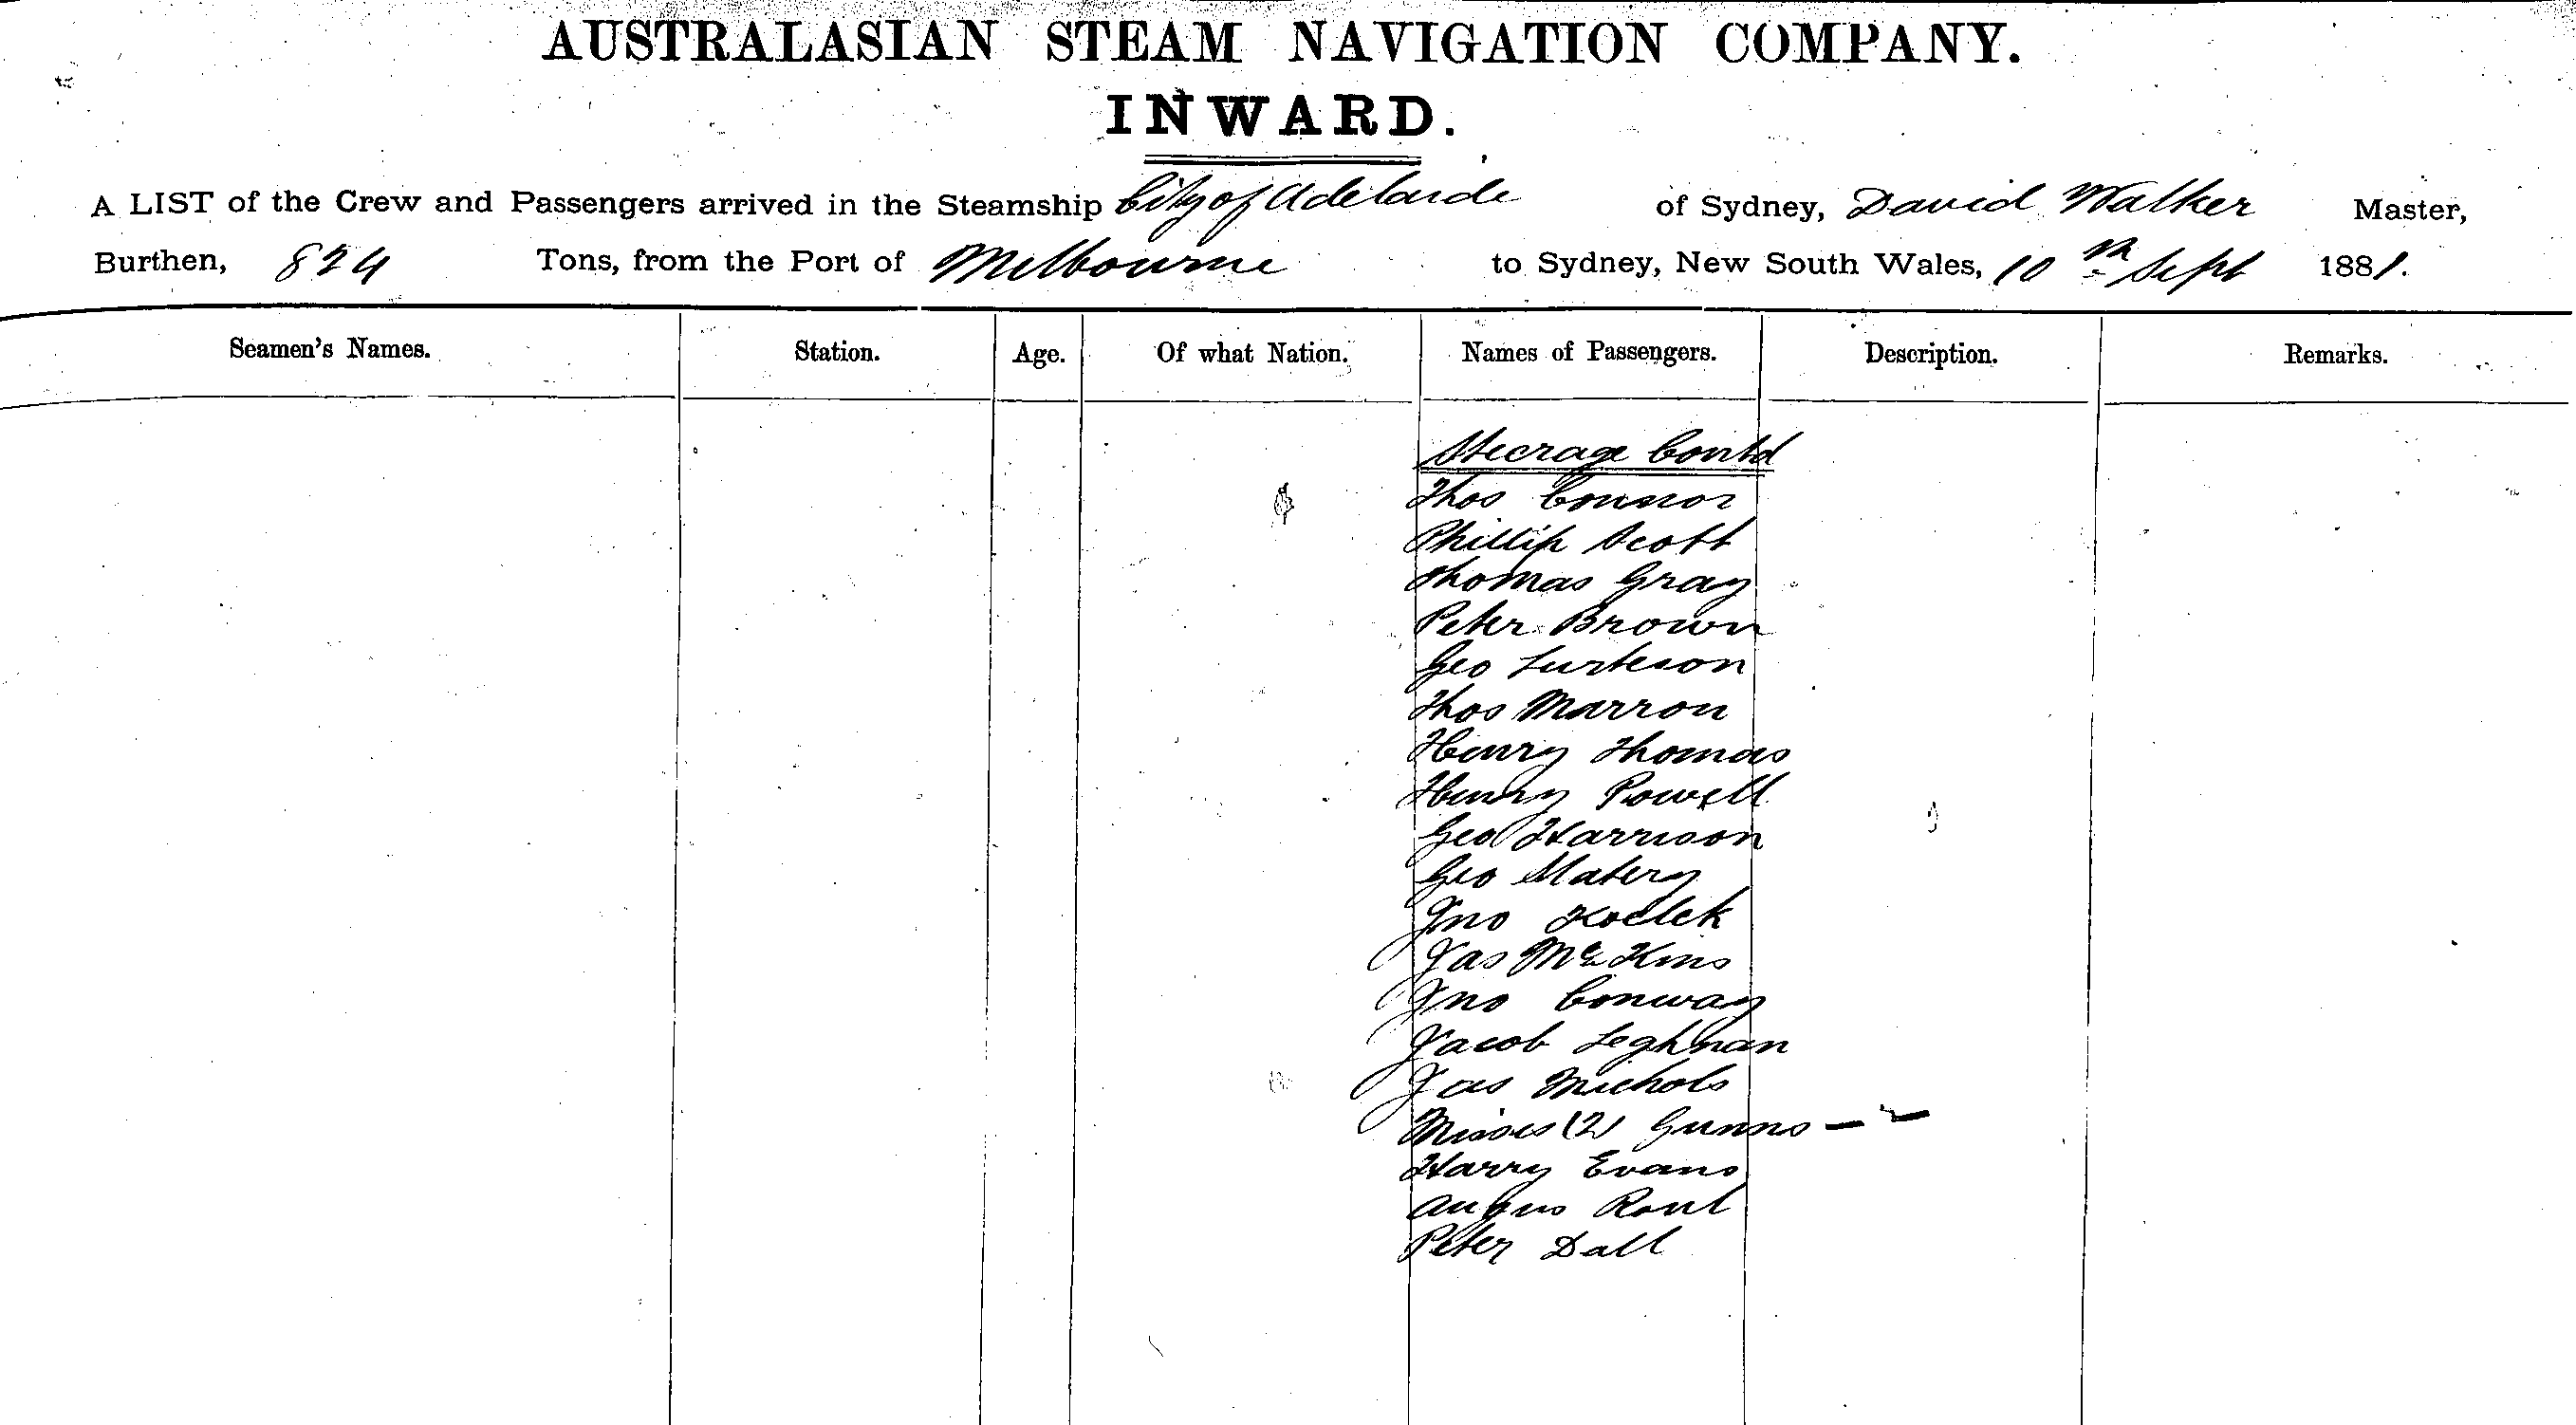 AUSTRALASIAN STEAM NAVIGATION COMPANY.
INWARD.
A LIST of the Crew and Passengers arrived in the Steamship City of Adelaide of Sydney, David Walker Master,
Burthen, 824 Tons, from the Port of Melbourne to Sydney, New South Wales, 10th Sept 1881.
Seamen's Names. Station. Age. Of what Nation. Names of Passengers. Description. Remarks.
Steerage Contd
Thos Connor
Phillip Scott
Thomas Gray
Peter Brown
Geo
Thos Marron
Henry Thomas
Henry Powell
Geo Harrison
Geo Matery
Jno
Jas
Jno Conway
Jacob Leghman
Jas Nichols
Misses (2) Gunns —
Harry Evans
Angus
Peter Dall